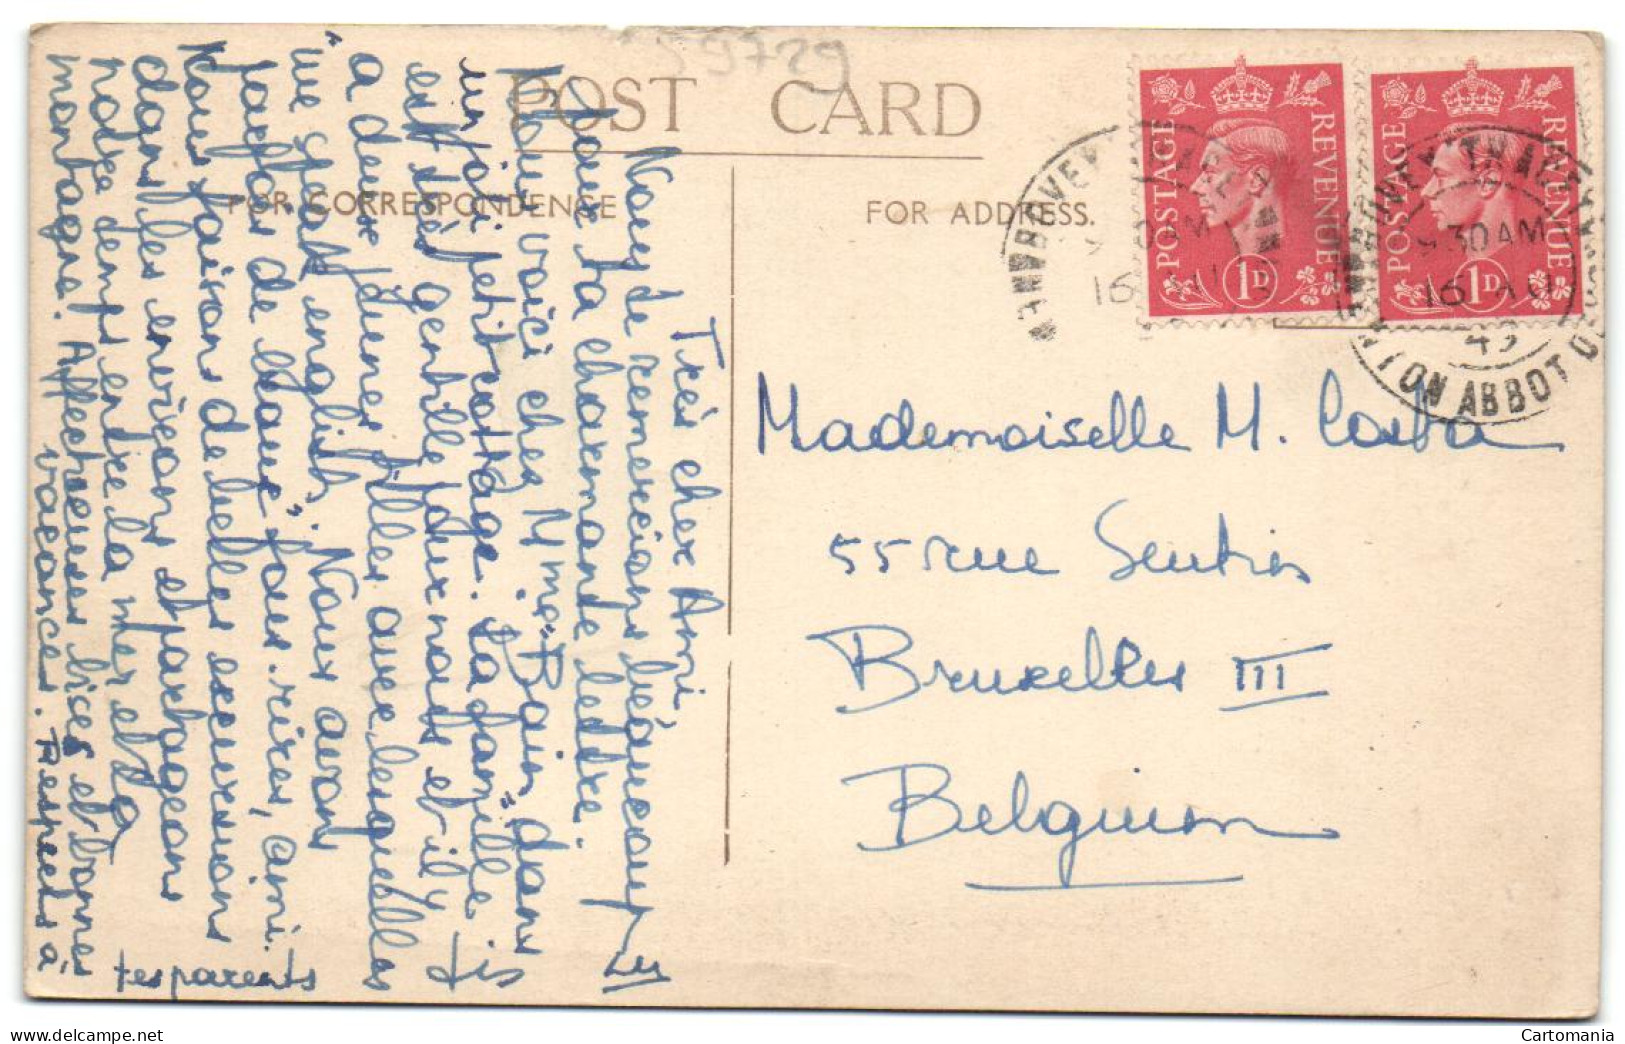 59729
POST CARD
FOR CORRESPONDENCE
FOR ADDRESS.
POSTAGE REVENUE
1D
POSTAGE REVENUE
1D
9 30 AM
16 AU
49
NEWTON ABBOT DEVON
Mademoiselle M.
55 rue
Bruxelles III
Belgium
Très cher Ami,
Nous te remercions beaucoup
pour ta charmante lettre.
Nous voici chez Mme "Bain" dans
un joli petit cottage. La famille
est très gentille pour nous et il y
a deux jeunes filles avec lesquelles
"we speak english". Nous avons
parfois de beaux "fous-rires, ami.
Nous faisons de belles excursions
dans les environs et partageons
notre temps entre la mer et la
montagne. Affectueuses bises et bonnes
vacances. Respects à
tes parents